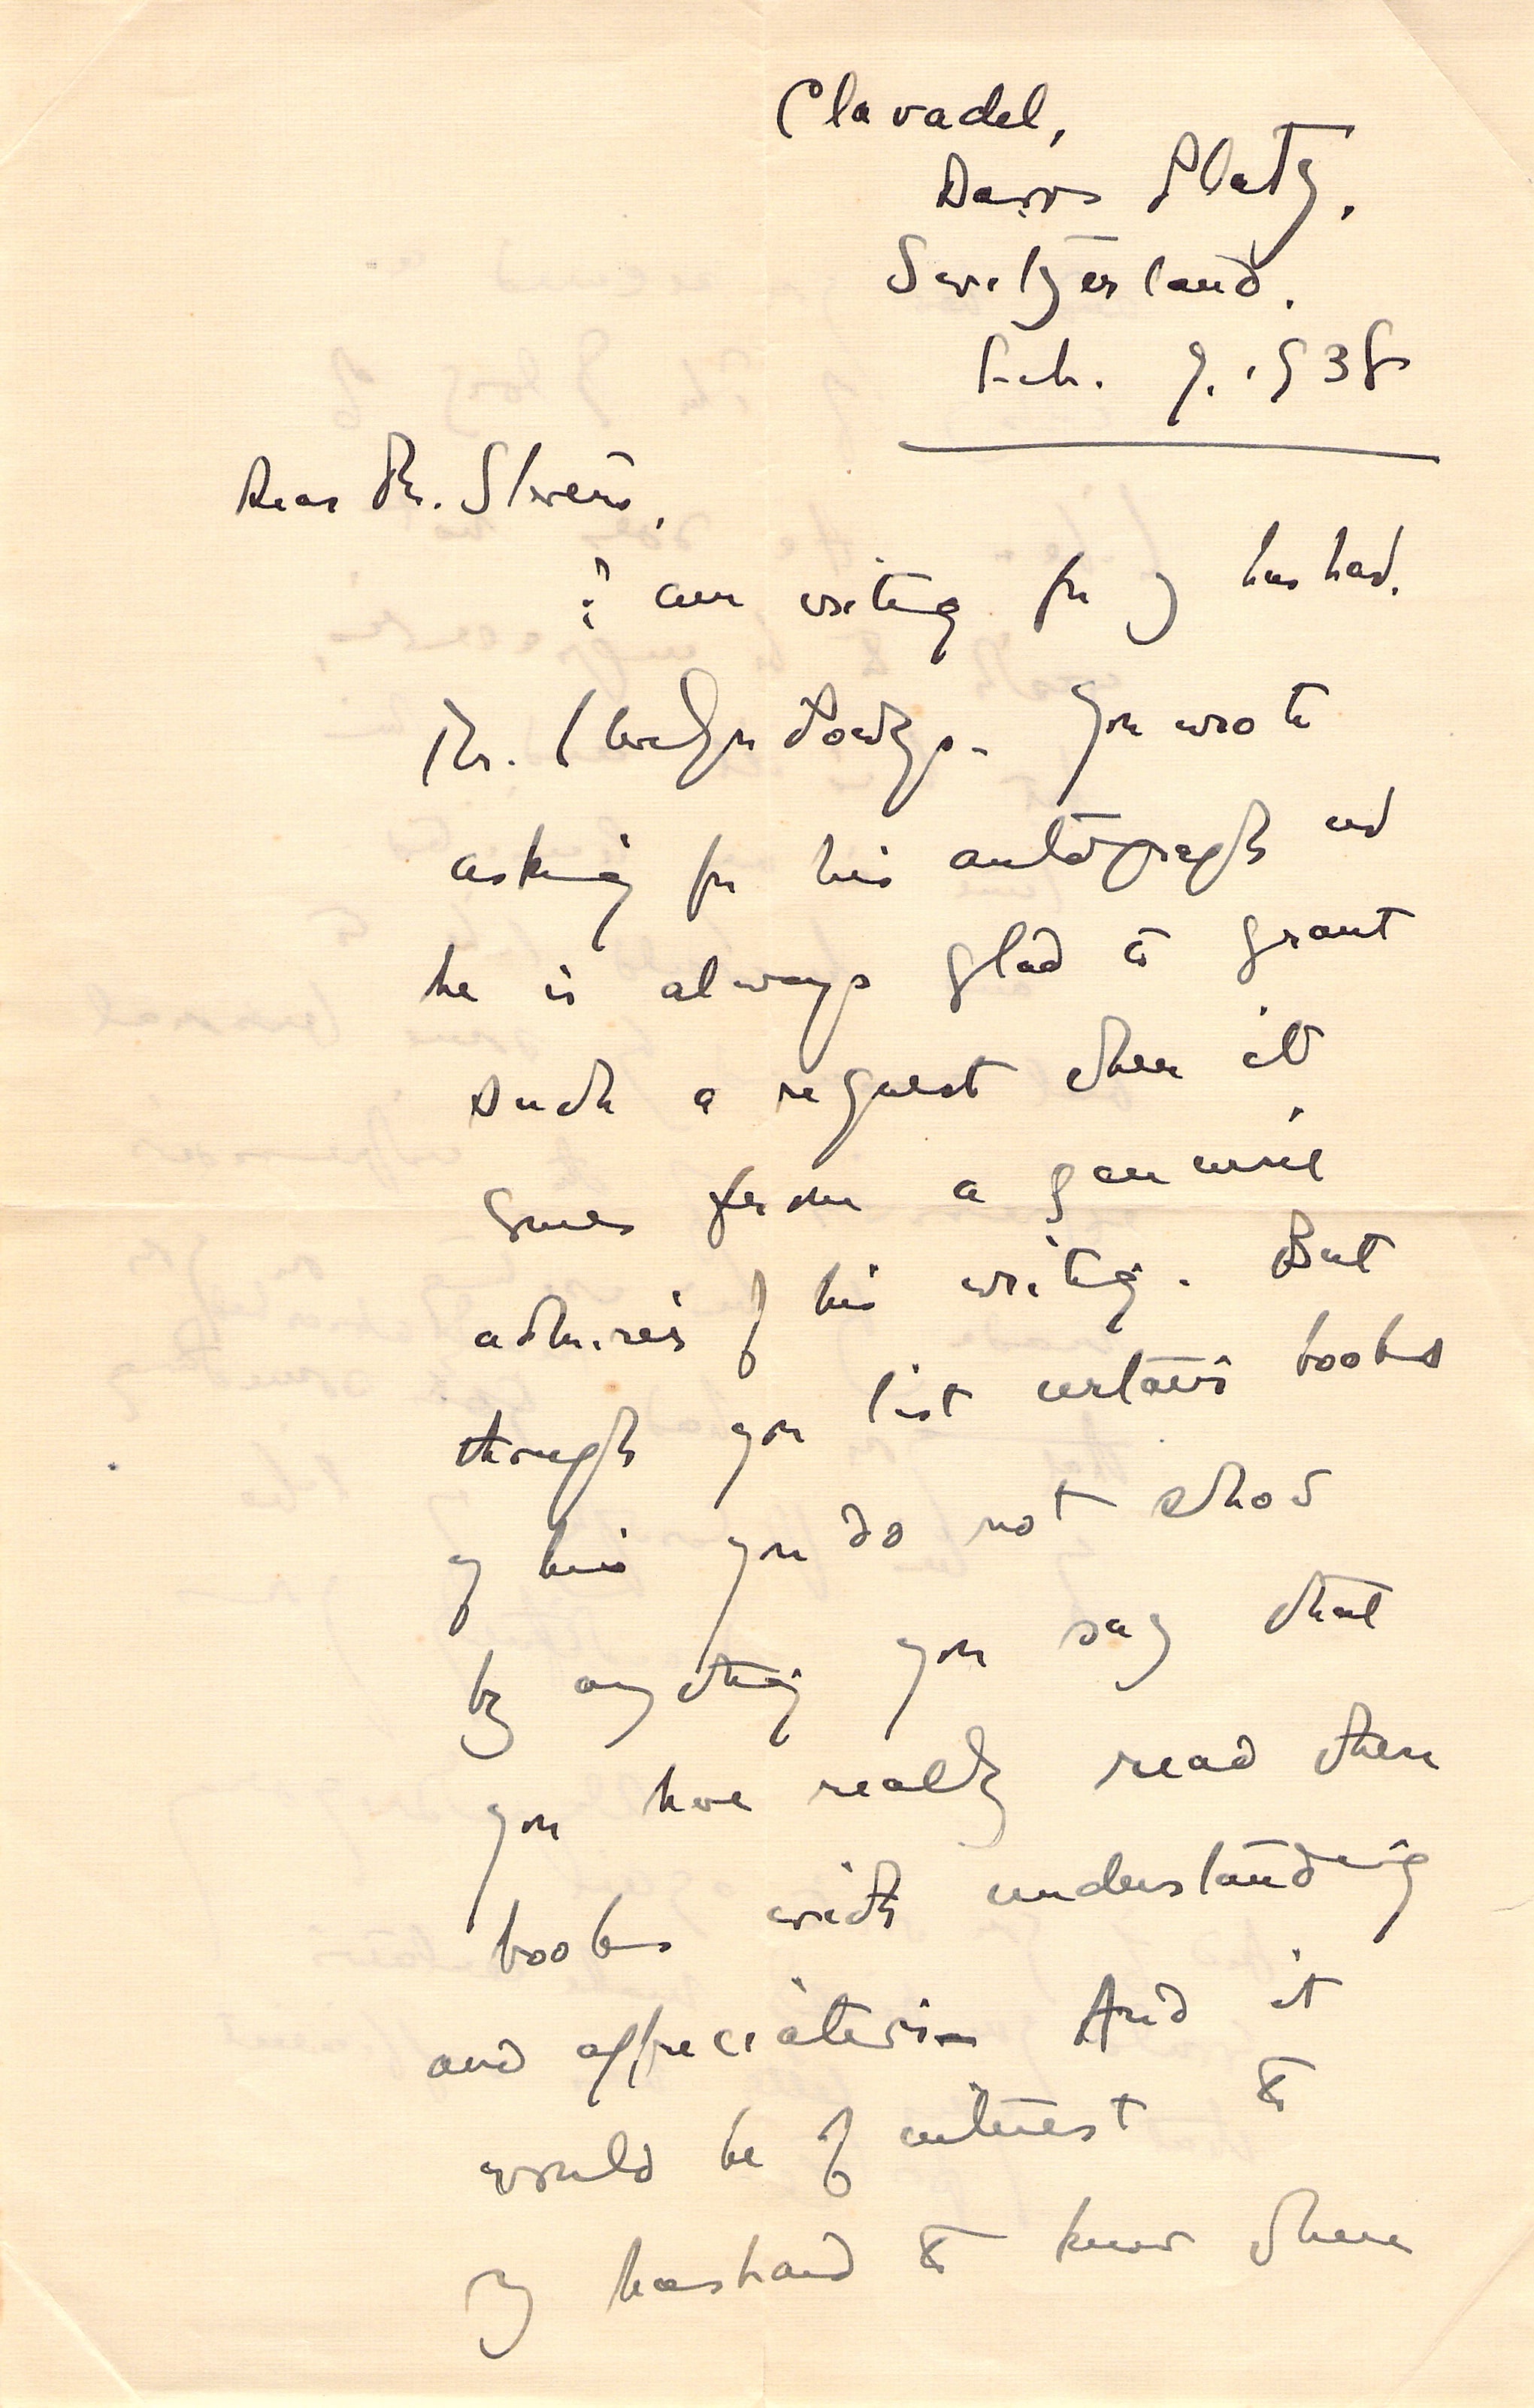 Clavadel,
Davos Platz,
Switzerland.
Feb. 9. 1938
Dear Mr. Stevens,
I am writing for my husband.
Mr. Llewelyn Powys. You wrote
asking for his autograph and
he is always glad to grant
such a request when it
comes from a genuine
admirer of his writing. But
though you list certain books
of his you do not show
by anything you say that
you have really read these
books with understanding
and appreciation And it
would be of interest to
my husband to know